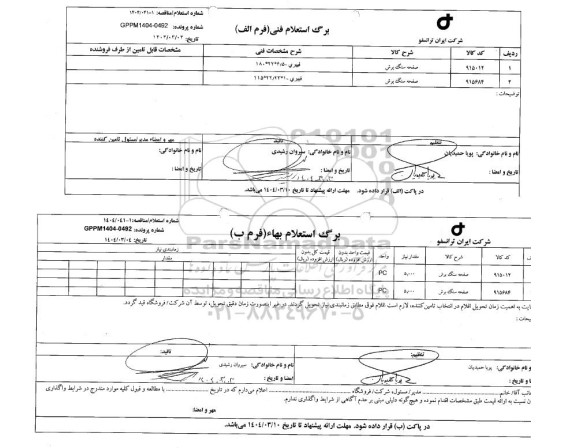 برگ استعلام فنی(فرم الف)
شماره پرونده: GPPM1404-0492
شرکت ایران ترانسفو
ردیف کد کالا شرح کالا شرح مشخصات فنی مشخصات قابل تامین از طرف فروشنده
۱ ۹۱۵۰۱۲ صفحه سنگ برش
۲ ۹۱۵۶۸۴ صفحه سنگ برش
توضیحات :
تنظیم: تائید: مهر و امضاء مدیر/مسئول تامین کننده
نام و نام خانوادگی: پویا حمیدیان نام و نام خانوادگی: سیروان رشیدی نام و نام خانوادگی:
تاریخ و امضا : تاریخ و امضا : تاریخ و امضا :
در پاکت (الف) قرار داده شود. مهلت ارائه پیشنهاد تا تاریخ ۱۴۰۴/۰۳/۱۰ می‌باشد.
برگ استعلام بهاء(فرم ب)
شماره استعلام/مناقصه: ۱۴۰۴/۰۴۱-۱
شماره پرونده: GPPM1404-0492
تاریخ: ۱۴۰۴/۰۳/۰۴
شرکت ایران ترانسفو
کد کالا شرح کالا مقدار نیاز واحد قیمت واحد بدون ارزش افزوده (ریال) قیمت کل بدون ارزش افزوده (ریال) زمانبندی نیاز
مقدار
۹۱۵۰۱۲ صفحه سنگ برش ۵,۰۰۰ PC
۹۱۵۶۸۴ صفحه سنگ برش ۵,۰۰۰ PC
به اهمیت زمان تحویل اقلام در انتخاب تامین کننده، لازم است اقلام فوق مطابق زمانبندی نیاز تحویل گردند. در غیر اینصورت زمان دقیق تحویل، توسط آن شرکت/ فروشگاه قید گردد.
ParsNamadData
۰۲۱-۸۸۳۴۹۶۷۰-۵
تنظیم: تائید:
نام و نام خانوادگی: پویا حمیدیان نام و نام خانوادگی: سیروان رشیدی
امضا و تاریخ : امضا و تاریخ :
آقا/ خانم مدیر/ مسئول شرکت/ فروشگاه اعلام می‌دارم که در تاریخ با مطالعه و قبول کلیه موارد مندرج در شرایط واگذاری
نسبت به ارائه قیمت طبق مشخصات اقدام نموده و هیچ‌گونه دلیلی مبنی بر عدم آگاهی از شرایط واگذاری ندارم.
مهر و امضا :
در پاکت (ب) قرار داده شود. مهلت ارائه پیشنهاد تا تاریخ ۱۴۰۴/۰۳/۱۰ می‌باشد.